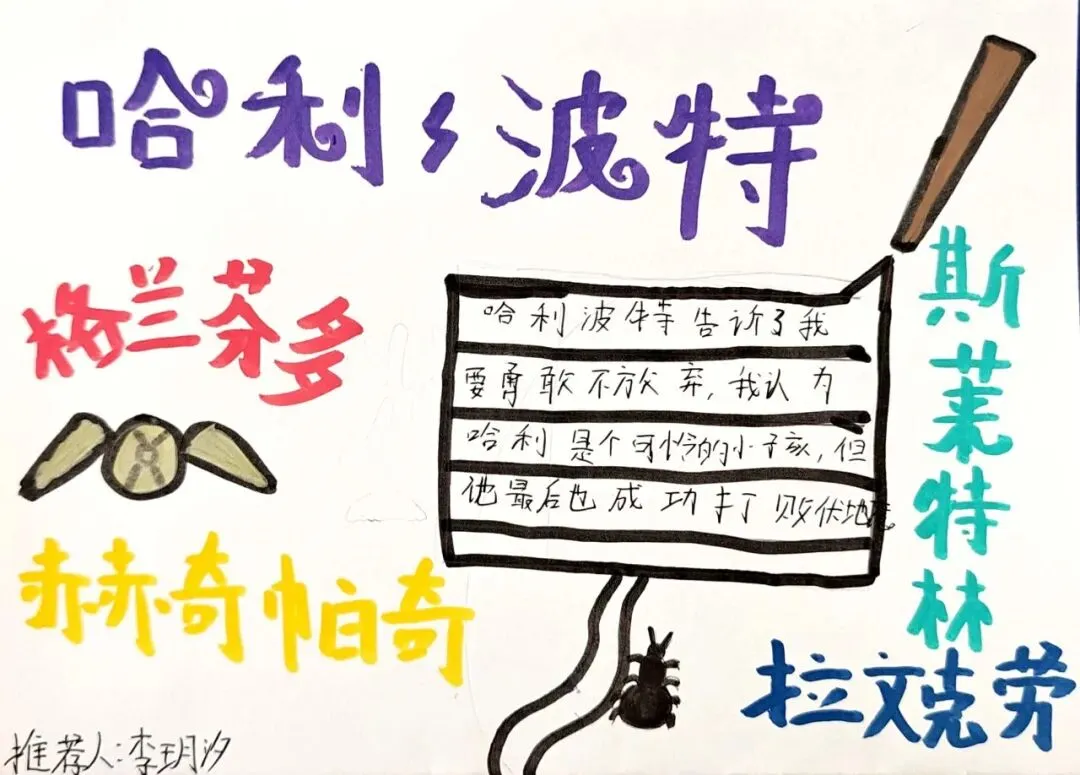 哈利波特
格兰芬多
哈利波特告诉了我
要勇敢不放弃,我认为
哈利是个可怜的小孩,但
他最后也成功打败伏地魔
斯莱特林
赫奇帕奇
拉文克劳
推荐人:李玥汐